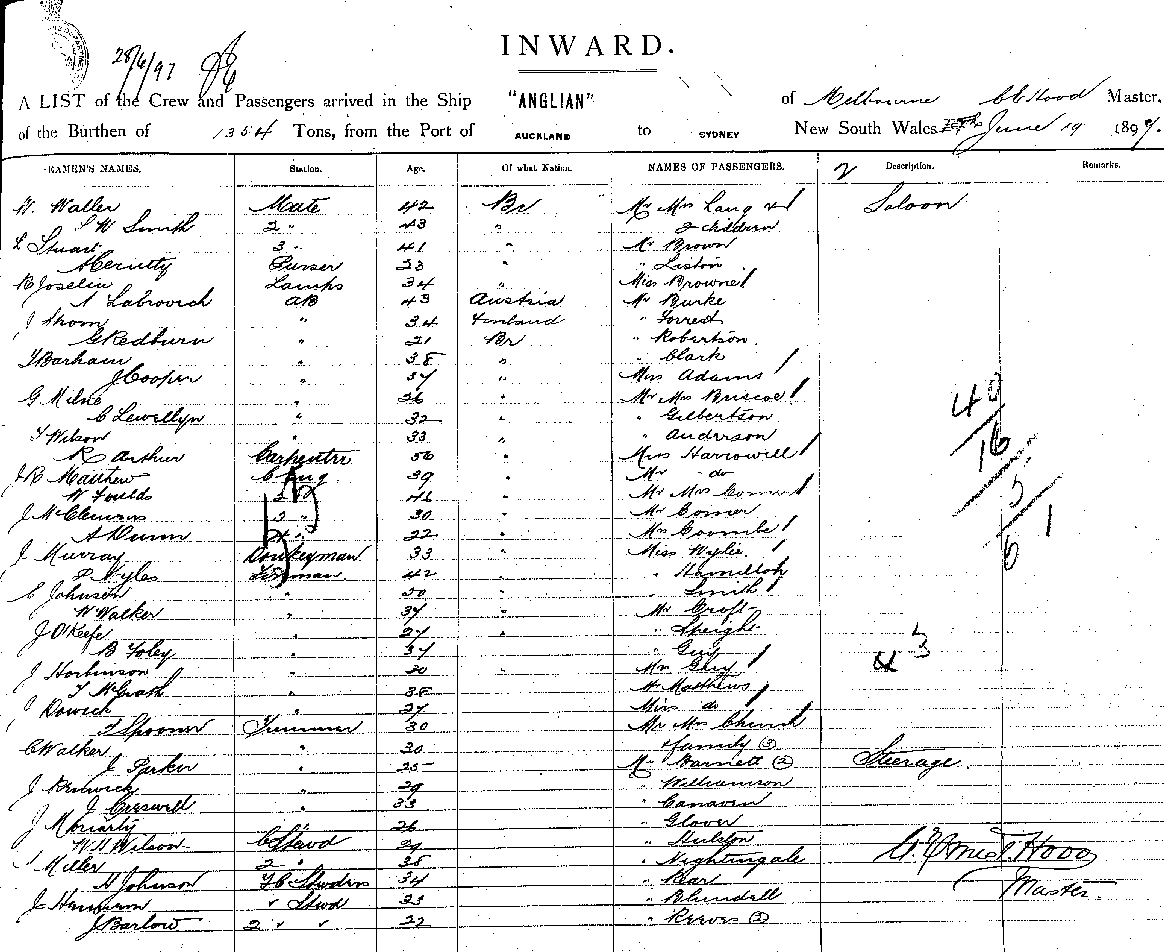 28/6/97
INWARD.
A LIST of the Crew and Passengers arrived in the Ship "ANGLIAN" of Melbourne Hood Master.
of the Burthen of 1354 Tons, from the Port of AUCKLAND to SYDNEY New South Wales June 19 1897.
EAMEN'S NAMES. Station. Age. Of what Nation. NAMES OF PASSENGERS. 2 Description. Remarks.
W. Waller Mate 42 Br Mr Mrs Lang & 1 Saloon
W Smith 2 " 43 " 2 children
L Stuart 3 " 41 " Mr Brown
Purser 23 " " Liston
R Joselin Lamps 34 " Miss Browne
A Labrovich AB 43 Austria Mr Burke
J Thom " 34 Finland " Forrest
G Redburn " 21 Br " Robertson
T Barham " 38 " " Clark
J Cooper " 37 " Miss Adams
G Milne " 26 " Mr Mrs Briscoe
C Lewellyn " 32 " " Gilbertson
T Wilson " 33 " " Anderson
R Arthur Carpenter 50 " Miss Harrowell
J R Matthew C Eng 39 " Mr do
W Foulds 2 " " Mr Mrs
J McClemens 3 " 30 " Mr Comer
A Dunn 4 " 22 " Mrs Coombe
J Murray Donkeyman 33 " Miss Wylie
P Nyles Fireman 42 " " Hamilton
C Johnson " 50 " " Smith
W Walker " 37 " Mr Croft
J O'Keefe " 27 " " Speight
B Foley " 37 " Guy
J Harbinson " 30 " Mrs Guy
T McGrath " 38 Mr Matthews
J Rowick " 27 Miss do
T Spooner Trimmer 30 Mr Mrs
C Walker " 20 & family (3)
J Parker " 25 Mr Barnett (2) Steerage.
J Renwick " 29 " Williamson
J Creswell 33 " Canaven
J Moriarty 26 " Glover
W H Wilson C Stewd 29 " Hulston
Miller 2 " 35 " Nightingale
A Johnson F C Stwdess 34 " Kear
J " Stwd 23 " Blundell
J Barlow 2 " " 22 " Reeves (2)
Hood
Master.